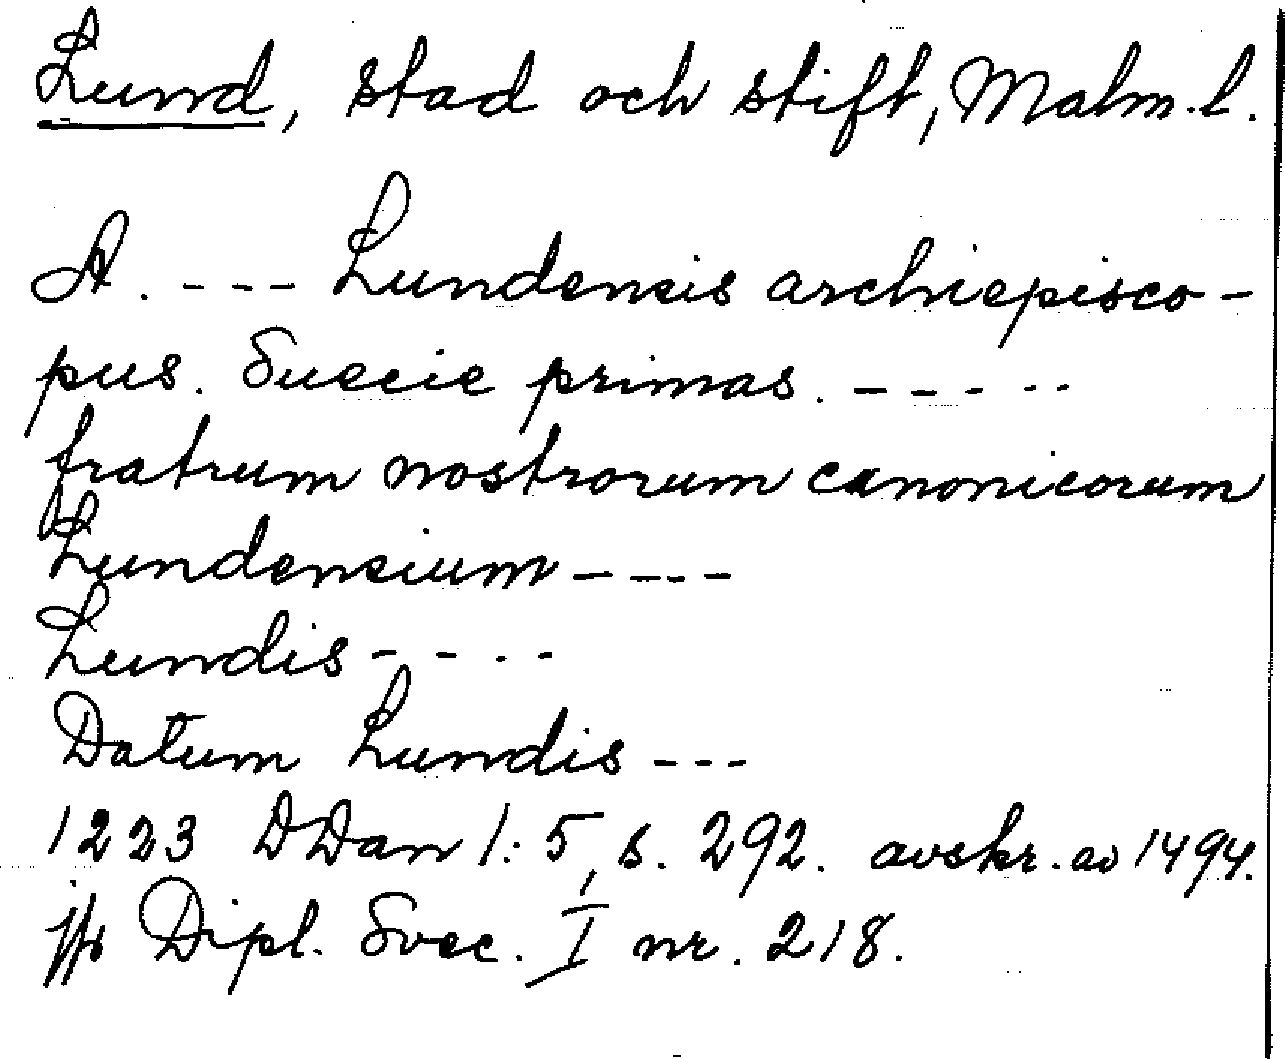 Lund, stad och stift, Malm.l.
A. --- Lundensis archiepisco-
pus. Suecie primas. -----
fratrum nostrorum canonicorum
Lundensium ----
Lundis ----
Datum Lundis ---
1223 DDan 1:5, s. 292. avskr. av 1494.
jfr Dipl. Svec. I nr. 218.